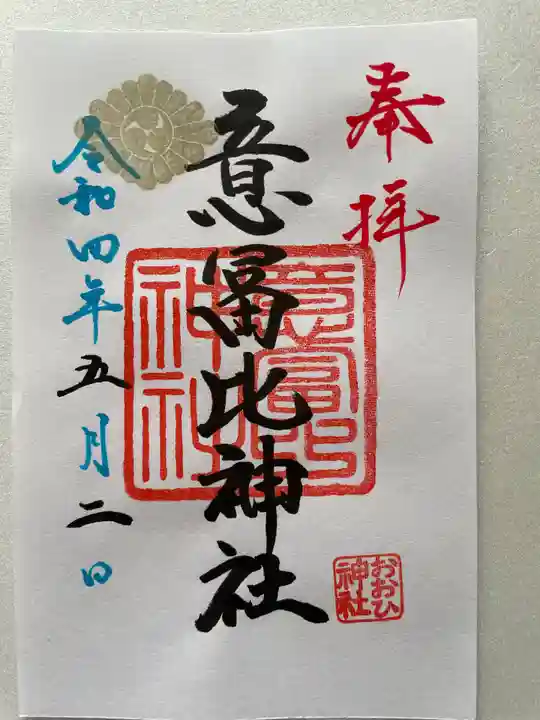 奉拝
意冨比神社
意富比神社
おおひ
神社
令和四年五月二日